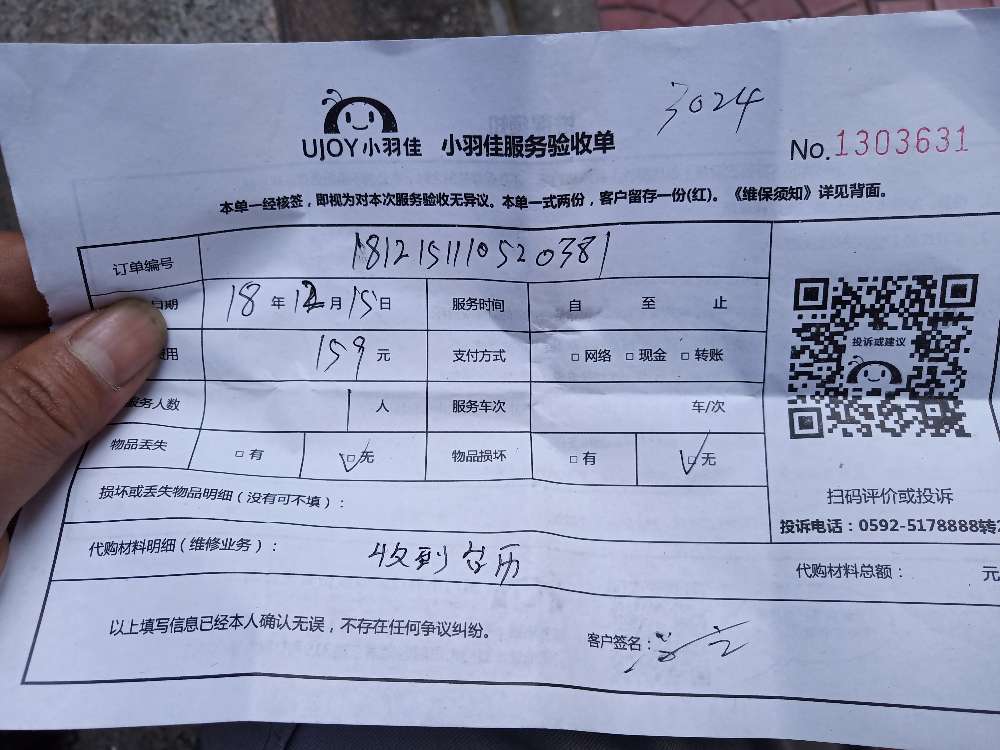 3024
UJOY小羽佳 小羽佳服务验收单 No.1303631
本单一经核签，即视为对本次服务验收无异议。本单一式两份，客户留存一份(红)。《维保须知》详见背面。
订单编号 1812151110520381
日期 18年12月15日 服务时间 自 至 止
费用 159元 支付方式 □网络 □现金 □转账
服务人数 1人 服务车次 车/次
物品丢失 □有 ☑无 物品损坏 □有 ☑无
投诉或建议
扫码评价或投诉
投诉电话：0592-5178888转2
损坏或丢失物品明细（没有可不填）：
代购材料明细（维修业务）： 收到台历 代购材料总额： 元
以上填写信息已经本人确认无误，不存在任何争议纠纷。 客户签名：